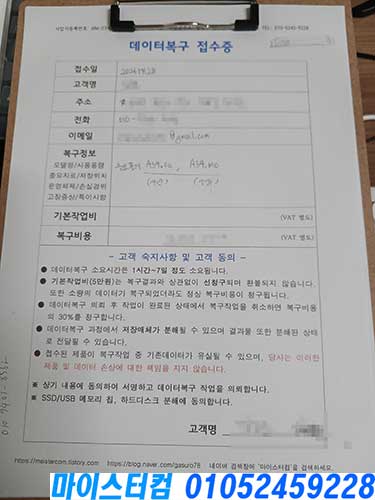 데이터복구 접수증
접수일
고객명
주소
전화
010-
이메일
@gmail.com
복구정보
모델명/사용용량
중요자료/저장위치
운영체제/손실경위
고장증상/특이사항
기본작업비 (VAT 별도)
복구비용 (VAT 별도)
- 고객 숙지사항 및 고객 동의 -
● 데이터복구 소요시간은 1시간~7일 정도 소요됩니다.
● 기본작업비(5만원)는 복구결과와 상관없이 선청구되며 환불되지 않습니다.
또한 소량의 데이터가 복구되었더라도 정상 복구비용이 청구됩니다.
● 데이터복구 의뢰 후 작업이 완료된 상태에서 복구작업을 취소하면 복구비용
의 30%를 청구합니다.
● 데이터복구 과정에서 저장매체가 분해될 수 있으며 결과물 또한 분해된 상태
로 전달될 수 있습니다.
● 접수된 제품이 복구작업 중 기존데이터가 유실될 수 있으며, 당사는 이러한
제품 및 데이터 손상에 대한 책임을 지지 않습니다.
※ 상기 내용에 동의하여 서명하고 데이터복구 작업을 의뢰합니다.
※ SSD/USB 메모리 칩, 하드디스크 분해에 동의합니다.
고객명
https://meistercom.tistory.com https://blog.naver.com/gasuro78 네이버 검색창에 "마이스터컴"을 검색하세요.
마이스터컴 01052459228